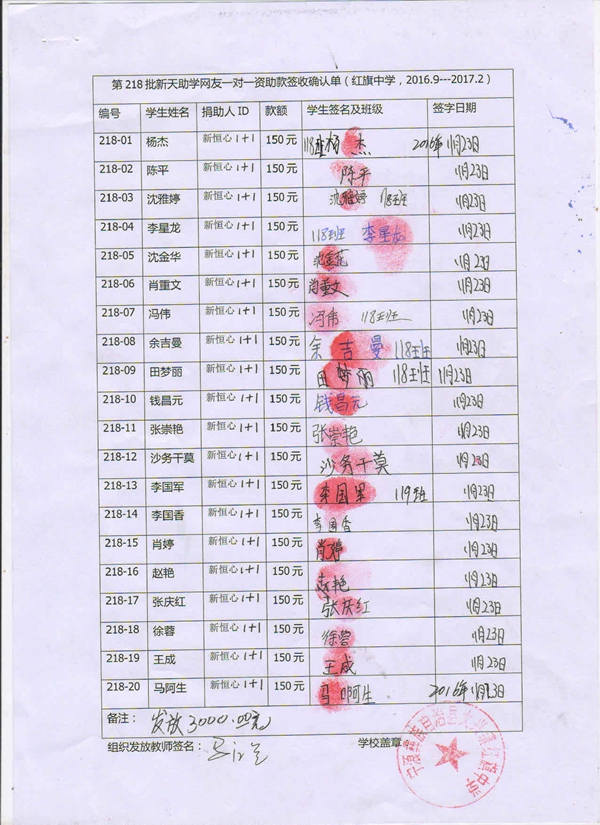 第 218 批新天助学网友一对一资助款签收确认单（红旗中学，2016.9---2017.2）
编号 学生姓名 捐助人 ID 款额 学生签名及班级 签字日期
218-01 杨杰 新恒心 1+1 150 元 118班杨杰 2016年11月23日
218-02 陈平 新恒心 1+1 150 元 陈平 11月23日
218-03 沈雅婷 新恒心 1+1 150 元 沈雅婷 118班 11月23日
218-04 李星龙 新恒心 1+1 150 元 118班 李星龙 11月23日
218-05 沈金华 新恒心 1+1 150 元 沈金花 11月23日
218-06 肖重文 新恒心 1+1 150 元 肖重文 11月23日
218-07 冯伟 新恒心 1+1 150 元 冯伟 118班 11月23日
218-08 余吉曼 新恒心 1+1 150 元 余吉曼 118班 11月23日
218-09 田梦丽 新恒心 1+1 150 元 田梦丽 118班 11月23日
218-10 钱昌元 新恒心 1+1 150 元 钱昌元 11月23日
218-11 张崇艳 新恒心 1+1 150 元 张崇艳 11月23日
218-12 沙务干莫 新恒心 1+1 150 元 沙务干莫 11月23日
218-13 李国军 新恒心 1+1 150 元 李国军 119班 11月23日
218-14 李国香 新恒心 1+1 150 元 李国香 11月23日
218-15 肖婷 新恒心 1+1 150 元 肖婷 11月23日
218-16 赵艳 新恒心 1+1 150 元 赵艳 11月23日
218-17 张庆红 新恒心 1+1 150 元 张庆红 11月23日
218-18 徐蓉 新恒心 1+1 150 元 徐蓉 11月23日
218-19 王成 新恒心 1+1 150 元 王成 11月23日
218-20 马阿生 新恒心 1+1 150 元 马阿生 2016年11月23日
备注： 发放3000.00元
组织发放教师签名： 学校盖章